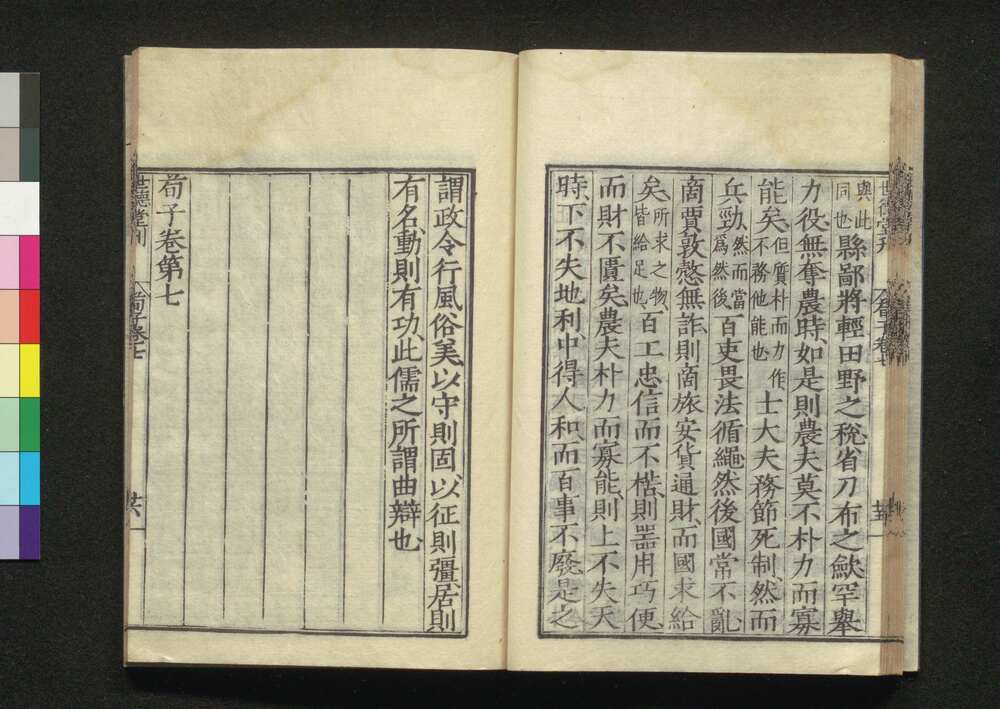 與此
同也縣鄙將輕田野之稅、省刀布之斂、罕舉
力役、無奪農時、如是則農夫莫不朴力而寡
能矣、但質朴而力作
不務他能也士大夫務節死制、然而
兵勁、然而當
爲然後百吏畏法循繩、然後國常不亂、
商賈敦愨無詐、則商旅安、貨通財、而國求給
矣、所求之物
皆給足也百工忠信而不楛、則器用巧便
而財不匱矣、農夫朴力而寡能、則上不失天
時、下不失地利、中得人和、而百事不廢、是之
謂政令行、風俗美、以守則固、以征則彊、居則
有名、動則有功、此儒之所謂曲辯也、
荀子卷第七
世德堂刊
荀子卷七
共六